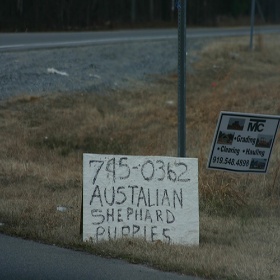 745-0362
AUSTALIAN
SHEPHARD
PUPPIES
TMC
•Grading
•Clearing •Hauling
919.548.4898